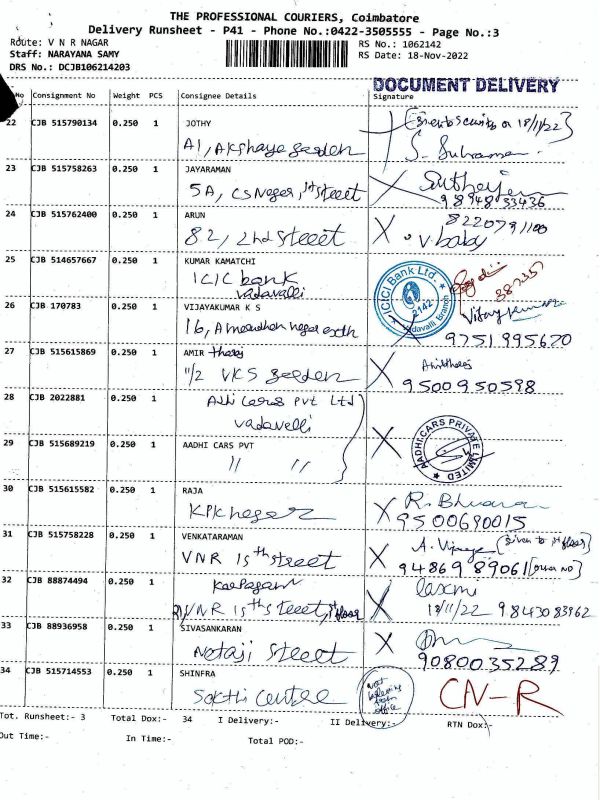 THE PROFESSIONAL COURIERS, Coimbatore
Delivery Runsheet - P41 - Phone No.:0422-3505555 - Page No.:3
Route: V N R NAGAR RS No.: 1062142
Staff: NARAYANA SAMY RS Date: 18-Nov-2022
DRS No.: DCJB106214203
DOCUMENT DELIVERY
No Consignment No Weight PCS Consignee Details Signature
22 CJB 515790134 0.250 1 JOTHY
A1, Akshaya Garden
S. Subraman
23 CJB 515758263 0.250 1 JAYARAMAN
5A, CS Nagar, 1st street
98948 33436
24 CJB 515762400 0.250 1 ARUN 8220791100
82, 2nd street V. baby
25 CJB 514657667 0.250 1 KUMAR KAMATCHI
ICIC bank
vadavalli
ICICI Bank Ltd.
2142
Vadavalli Branch
26 CJB 170783 0.250 1 VIJAYAKUMAR K S Vijay Kumar
16, 9751995620
27 CJB 515615869 0.250 1 AMIR tharaj
11/2 VKS garden 9500950598
28 CJB 2022881 0.250 1 Adhi Cares Pvt Ltd
vadavelli
AADHI CARS PRIVATE LIMITED
29 CJB 515689219 0.250 1 AADHI CARS PVT
" "
30 CJB 515615582 0.250 1 RAJA
KPK nagar 9500690015
31 CJB 515758228 0.250 1 VENKATARAMAN
VNR 15th street 94869 89061
32 CJB 88874494 0.250 1 Karpagam laxmi
VNR 15th street, 1st floor 18/11/22 9843083962
33 CJB 88936958 0.250 1 SIVASANKARAN
Netaji street 9080035289
34 CJB 515714553 0.250 1 SHINFRA
Sakthi Centre CN-R
Tot. Runsheet:- 3 Total Dox:- 34 I Delivery:- II Delivery:- RTN Dox:-
Out Time:- In Time:- Total POD:-